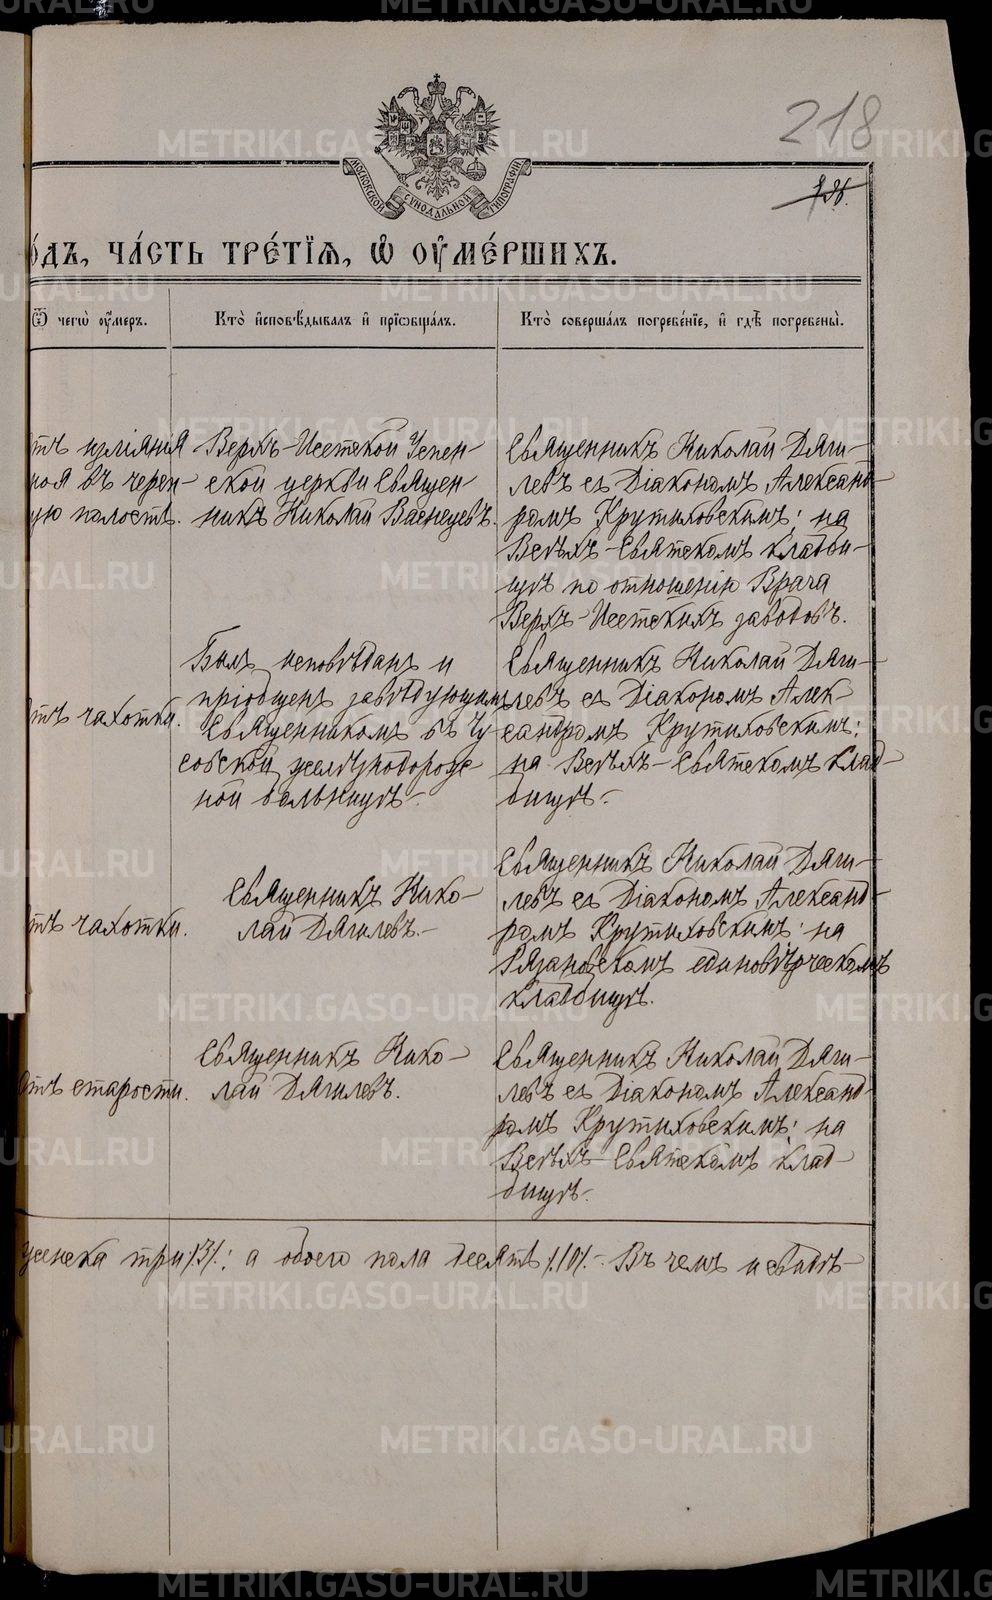 218
МОСКОВСКОЙ СѴНОДАЛЬНОЙ ТИПОГРАФІИ
о́дъ, ча́сть тре́тїѧ, ѡ҆ ᲂу҆ме́ршихъ.
Ѿ чегѡ̀ ᲂу҆́меръ.
Кто̀ и҆сповѣ́дывалъ и҆ прїѡбща́лъ.
Кто̀ соверша́лъ погребе́нїе, и҆ гдѣ̀ погребены̀.
тъ изліянія
ноя въ череп-
ую полость.
Верхъ-Исетской Успен-
ской церкви Священ-
никъ Николай Васнецевъ.
Священникъ Николай Дяги-
левъ съ Діакономъ Александ-
ромъ Крутиховскимъ; на
Всѣхъ-Святскомъ кладби-
щѣ по отношенію Врача
Верхъ-Исетскихъ заводовъ.
тъ чахотки.
Былъ исповѣданъ и
пріобщенъ завѣдующимъ
Священникомъ въ Чу-
совской желѣзнодорож-
ной больницѣ.
Священникъ Николай Дяги-
левъ съ Діакономъ Алек-
сандромъ Крутиховскимъ;
на Всѣхъ-Святскомъ клад-
бищѣ.
тъ чахотки.
Священникъ Нико-
лай Дягилевъ.
Священникъ Николай Дяги-
левъ съ Діакономъ Александ-
ромъ Крутиховскимъ; на
Рязановскомъ единовѣрческомъ
кладбищѣ.
отъ старости.
Священникъ Нико-
лай Дягилевъ.
Священникъ Николай Дяги-
левъ съ Діакономъ Александ-
ромъ Крутиховскимъ; на
Всѣхъ-Святскомъ клад-
бищѣ.
женска три /3/; а обоего пола десять /10/. Въ чемъ и свидѣ-
METRIKI.GASO-URAL.RU